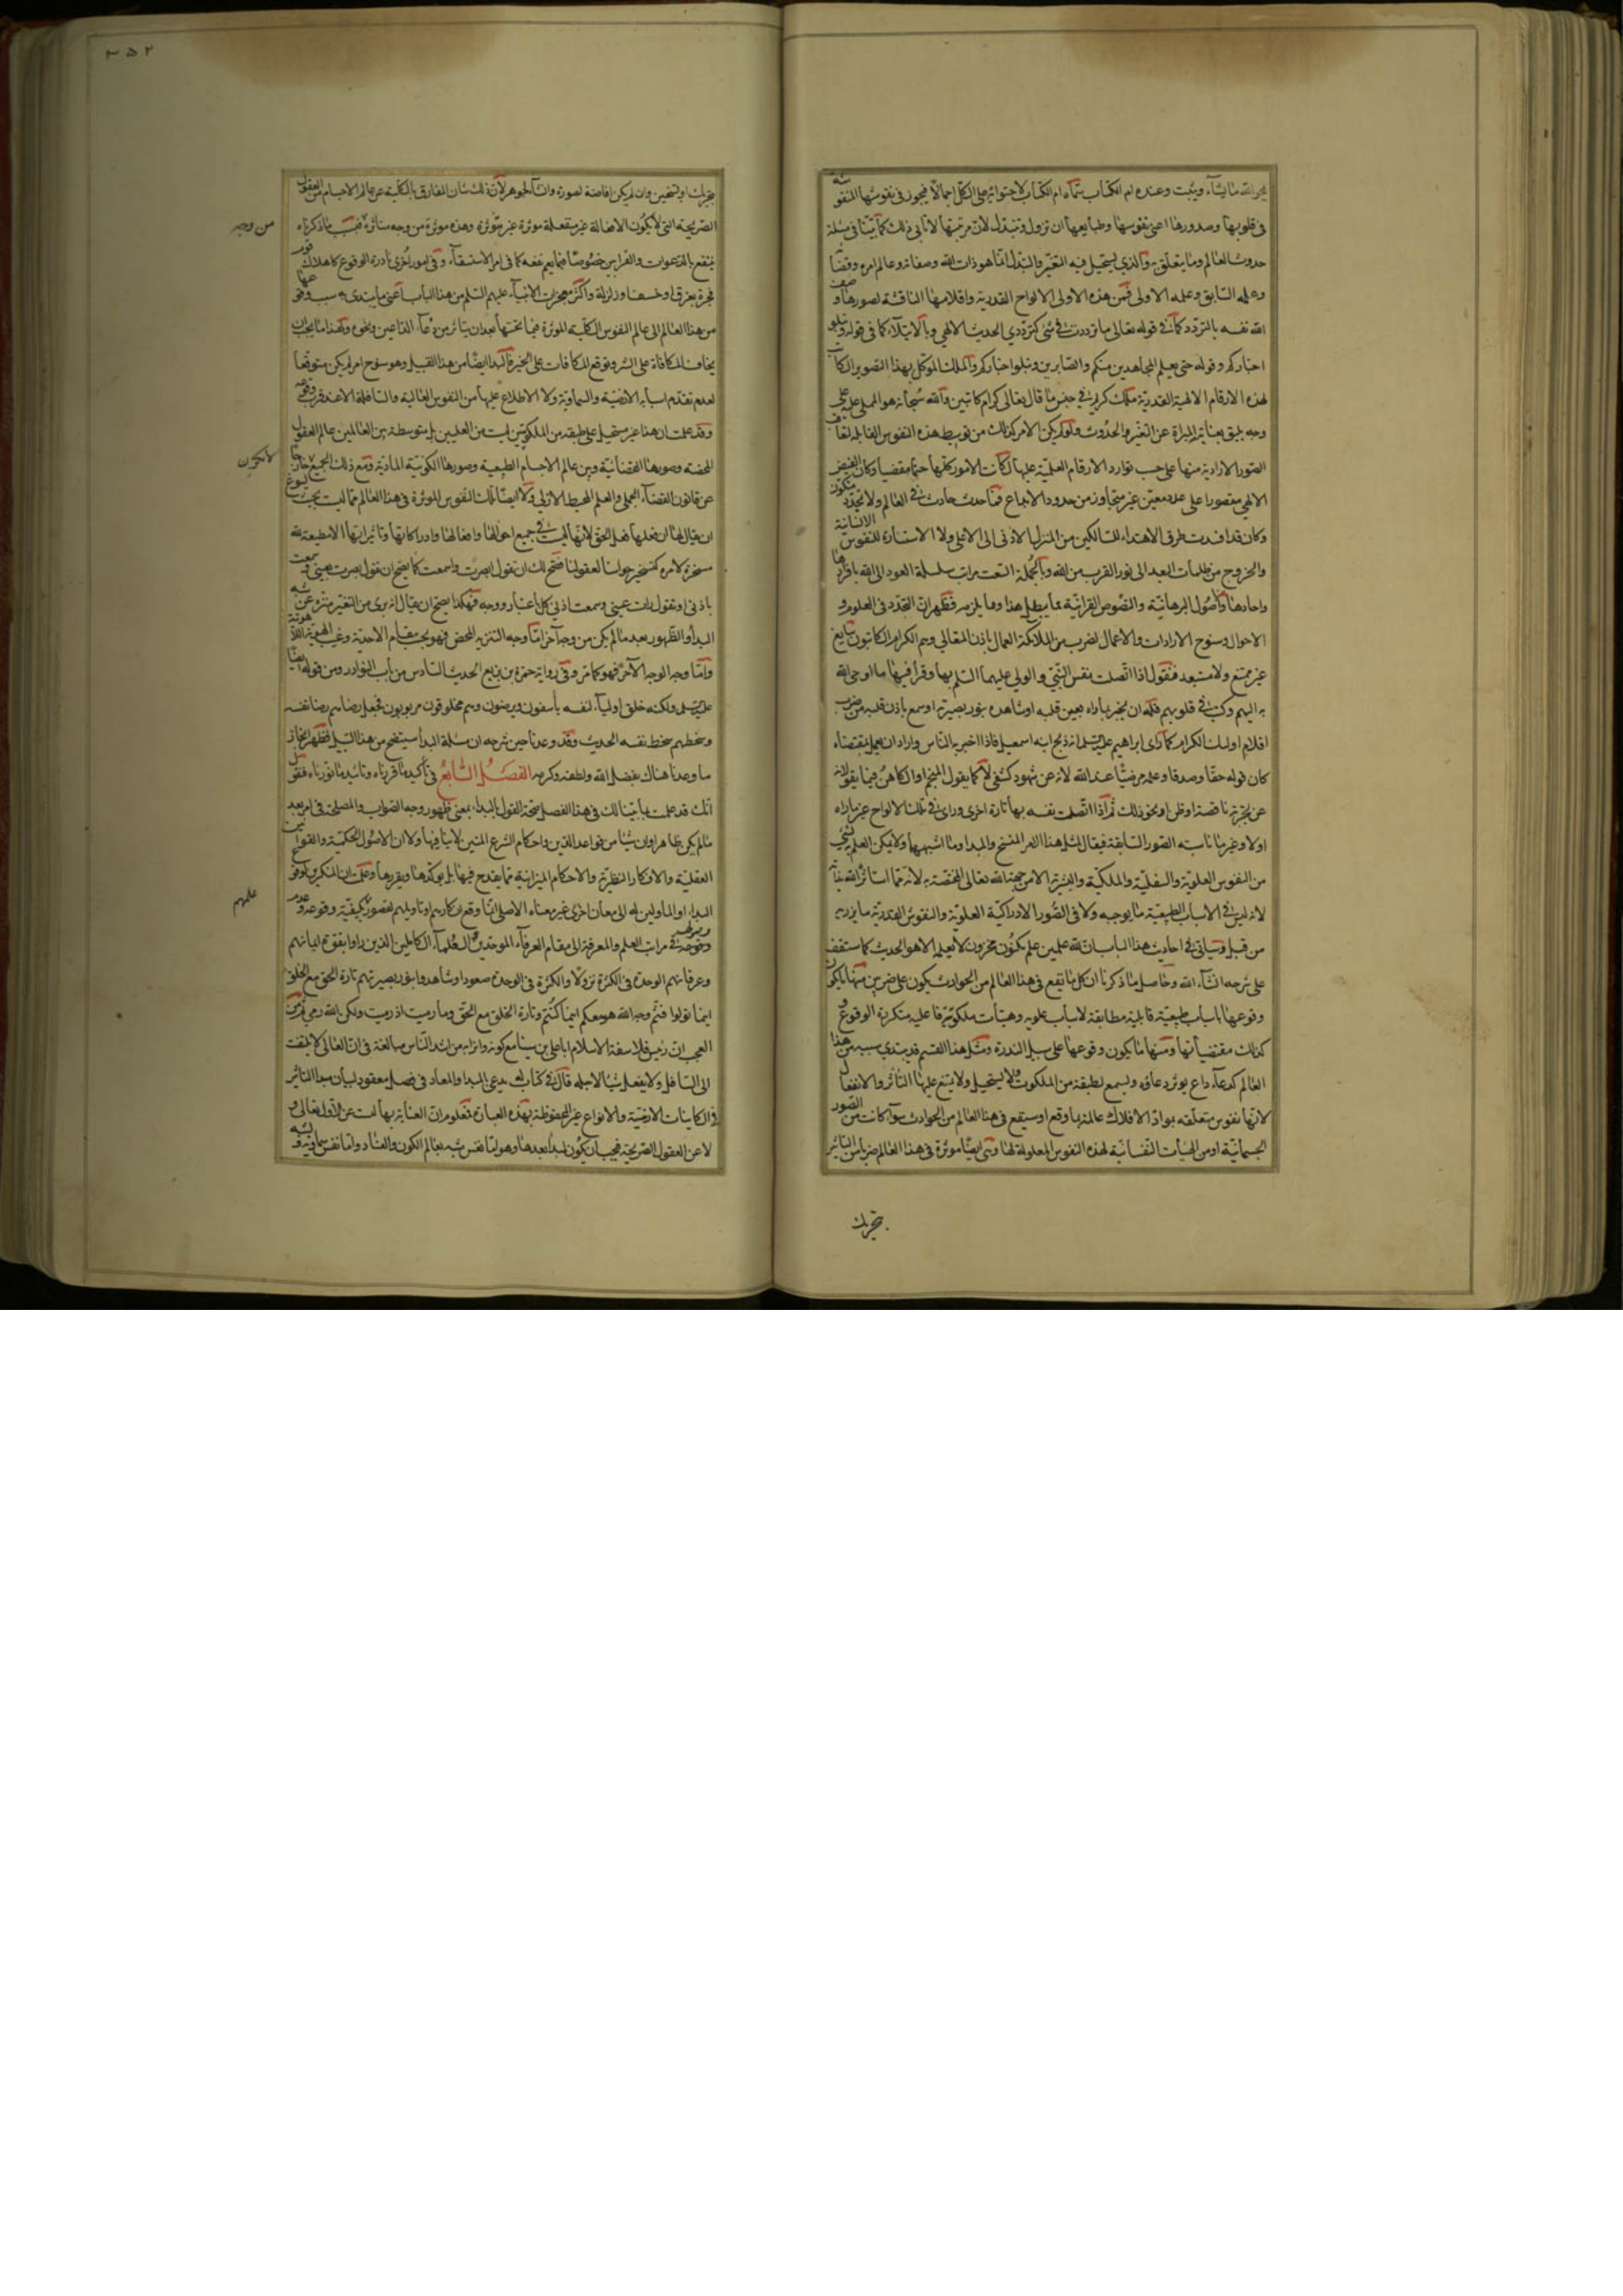 يمحو الله ما يشاء ويثبت وعنده ام الكتاب سماه ام الكتاب لاحتوائه على الكل اجمالا فيجوز فى نقوشها المنقوشة
فى قلوبها وصدورها اعنى نفوسها وطبايعها ان تزول وتتبدل لان مرتبتها لا تابى ذلك كما بيناه فى مسئلة
حدوث العالم وما يتعلق به والذي يستحيل فيه التغير والتبدل انما هو ذات الله وصفاته وعالم امره وقضائه
وعلمه السابق وعلمه الاولى فمن هذه الاولى الالواح القدرية واقلامها الناقشة لصورها وصف
الله نفسه بالتردد كما فى قوله تعالى ما ترددت فى شئ كترددي الحديث الالهي وبالابتلاء كما فى قوله ونبلو
اخباركم وقوله حتى يعلم المجاهدين منكم والصابرين ونبلوا اخباركم والملك الموكل بهذا التصوير الكاتب
لهذه الارقام الالهية القدرية ملك كريم فى جنس ما قال تعالى كرام كاتبين والله سبحانه هو المملى عليه على
وجه يليق بعنايته المبراة عن التغير والحدوث ولو لم يكن الامر كذلك من توسيط هذه النفوس القابلة لتعاقب
الصور الارادية منها على حسب توارد الارقام العلمية عليها لكانت الامور كلها حتما مقضيا وكان الفيض
الالهي مقصورا على عدد معين غير متجاوز من حدود الابداع فما حدث حادث فى العالم ولا تجدد متكون
وكان قد انسدت طرق الاهتداء للسالكين من المنزل الادنى الى الاعلى ولا الاستنارة للنفوس الانسانية
والخروج من ظلمات البعد الى نور القرب من الله وبالجملة امتنعت مراتب سلسلة العود الى الله بافرادها
واحادها واصول البرهانية والنصوص القرانية مما يبطل هذا وما يلزمه فظهر ان التجدد فى العلوم و
الاحوال وسنوح الارادات والاعمال لضرب من الملائكة العمال باذن الله تعالى وهم الكرام الكاتبون سايغ
غير ممتنع ولا مستبعد فنقول اذا اتصلت نفس النبي والولي عليهما السلم بها وقرأ فيها ما اوحى الله
به اليهم وكتب فى قلوبهم فله ان يخبر بما راه بعين قلبه او شاهده بنور بصيرته او سمع باذن قلبه من ضرب
اقلام اولئك الكرام كما رأى ابراهيم عليه السلم انه ذبح ابنه اسمعيل فاذا اخبر به الناس واراد ان يعمل بمقتضاه
كان قوله حقا وصدقا وعلمه مرضيا عند الله لانه عن شهود كشفي لا كما يقول المنجم او الكاهن فيما يقولانه
عن تجربة ناقصة او ظن او نحو ذلك ثم اذا اتصلت نفسه بها تارة اخرى ورأى فى تلك الالواح غير ما راه
اولا وغير ما ناسبته الصور السابقة فيقال لمثل هذا الامر النسخ والبدا وما اشبههما ولا يمكن العلم لشئ
من النفوس العلوية والسفلية والملكية والبشرية الا من جهة الله تعالى المختصة به لانه مما استاثره الله
لانه ليس فى الاسباب الطبيعية ما يوجبه ولا فى الصور الادراكية العلوية والنفوس القدرية ما يزيره
من قبل وسياتي فى احاديث هذا الباب ان لله علمين علم مكنون مخزون لا يعلمه الا هو الحديث كما ستقف
على شرحه انشاء الله وحاصل ما ذكرنا ان كل ما يقع فى هذا العالم من الحوادث يكون على ضربين منها ما يكون
وقوعها باسباب طبيعية قابلية مطابقة لاسباب علوية وهيآت ملكوتية فاعلية متكررة الوقوع و
كذلك مقتضياتها ومنها ما يكون وقوعها على سبيل الندرة ومثل هذا القسم قد يبتدي سببه من هذا
العالم كدعاء داع يوثر دعاؤه ويسمع لطبقة من الملكوت ولا يستحيل ولا يمتنع عليها التأثر والانفعال
لانها نفوس متعلقة بمواد الافلاك عالمة بما وقع او سيقع فى هذا العالم من الحوادث سوآ كانت من الصور
الجسمانية او من الهيات النفسانية لهذه النفوس المعلولة لها وهي ايضا موثرة فى هذا العالم ضربا من التاثير
تحريك
٣٥٢
تحريك او تسخين وان لم يكن افاضة لصورة وانشآ لجوهر لان ذلك شان المفارق بالكلية عن عالم الاجسام من العقول
الصريحة التي لا يكون الا فعالة غير منفعلة موثرة غير متاثرة وهذه موثرة من وجه متاثرة فبسبب ما ذكرناه
من وجه
ينتفع بالدعوات والقرابين خصوصا فيما يعم نفعه كما فى امر الاستسقاء وفى امور اخرى نادرة الوقوع كاهلاك قوم
فجرة بغرق او خسف او زلزلة واكثر معجزات الانبياء عليهم السلم من هذا الباب اعنى ما يبتدى به سبب وقوعها
من هذا العالم الى عالم النفوس الملكية الموثرة فيما تحتها بعد ان يتاثر من دعاء الداعين ونحوه ولهذا ما يجب ان
يخاف المكافاة على الشر وتوقع المكافات على الخير فالبدا ايضا من هذا القبيل وهو سنوح امر لم يكن متوقعا
لعدم تقدم اسبابه الارضية والسماوية ولا الاطلاع عليها من النفوس العالية والسافلة الا عند قرب وقوعه
وقد علمت ان هذا غير مستحيل على طبقة من الملكوتيين ليست من العليين بل متوسطة بين العالمين عالم العقول
المحضة وصورها القضائية وبين عالم الاجسام الطبيعية وصورها الكونية المادية ومع ذلك الجميع
لا يكون
عن قانون القضاء الجملى والعلم المحيط الازلي وكلا ايضا تلك النفوس الموثرة فى هذا العالم مما ليست بحيث يسوغ
ان يقال لها ان فعلها فعل الحق لانها ليست فى جميع احوالها وافعالها وادراكاتها وتأثيراتها الا مطيعة لله
مسخرة لامره كتسخير حواسنا لعقولنا فصح لك ان نقول ابصرت واسمعت كما يصح ان نقول بصرت بعيني وسمعت
باذني او تقول رات عيني وسمعت اذني كل باعتبار ووجه فهكذا يصح ان يقال انه بري من التغير منزه عن شبه
البدأ والظهور بعد ما لم يكن من وجه آخر اما وجه التنزيه المحض فهو بحسب مقام الاحدية وغيب الهوية اللاهوتية
واما وجه الوجه الآخر فهو كما مر وفى رواية حمزة بن بزيع الحديث السادس من باب النوادر ومن قوله ايضا
عليه السلم ولكنه خلق اولياء لنفسه يأسفون ويرضون وهم مخلوقون مربوبون فجعل رضاهم رضا نفسه
وسخطهم سخط نفسه الحديث وقد وعدنا حين شرحه ان مسئلة البدا سيتضح من هذا السبيل فظهر انجاز
ما وعدنا هناك بفضل الله ولطفه وكرمه الفصل السابع فى تأكيد ما قررناه وتائيد ما نورناه فنقول
انك قد علمت بما بينا لك فى هذا الفصل صحة القول بالبداء بمعنى ظهور وجه الصواب والمصلحة فى امر بعد
ما لم يكن ظاهرا وان شيئا من قواعد الدين واحكام الشرع المتين لا ينافيها ولا ان الاصول الحكمية والقوانين
العقلية والافكار النظرية والاحكام الميزانية مما يقدح فيها بل يؤكدها ويقررها وعلمت ان المنكرين لوقوع
البداء او الماولين له الى معان اخرى غير معناه الاصلى انما وقع انكارهم او تاويلهم لقصور كيفية وقوعه وعدم
علمهم
وقوفه فى مراتب العلم والمعرفة الى مقام العرفآء الموحدين والعلمآء الكاملين الذين راوا بقوة ايمانهم
وعرفانهم الوحدة فى الكثرة نزولا والكثرة فى الوحدة صعودا وشاهدوا بنور بصيرتهم تارة الحق مع الخلق
اينما تولوا فثم وجه الله هو معكم اينما كنتم وتارة الخلق مع الحق وما رميت اذ رميت ولكن الله رمى ومن
العجب ان رئيس فلاسفة الاسلام ابا على بن سينا مع كونه واترابه من اشد الناس مبالغة فى ان العالى لا يلتفت
الى السافل ولا يفعل شيئا لاجله قال فى كتاب له يدعى المبدا والمعاد فى فصل معقود لبيان مبدا التاثير
فى الكاينات الارضية والانواع غير المحفوظة بهذه العبارة فمعلوم ان العناية بها ليست عن الاول تعالى و
لا عن العقول الصريحة فيجب ان يكون لمبدأ بعدها وهو اما نفس شبه بعالم الكون والفساد واما نفس سماوية و